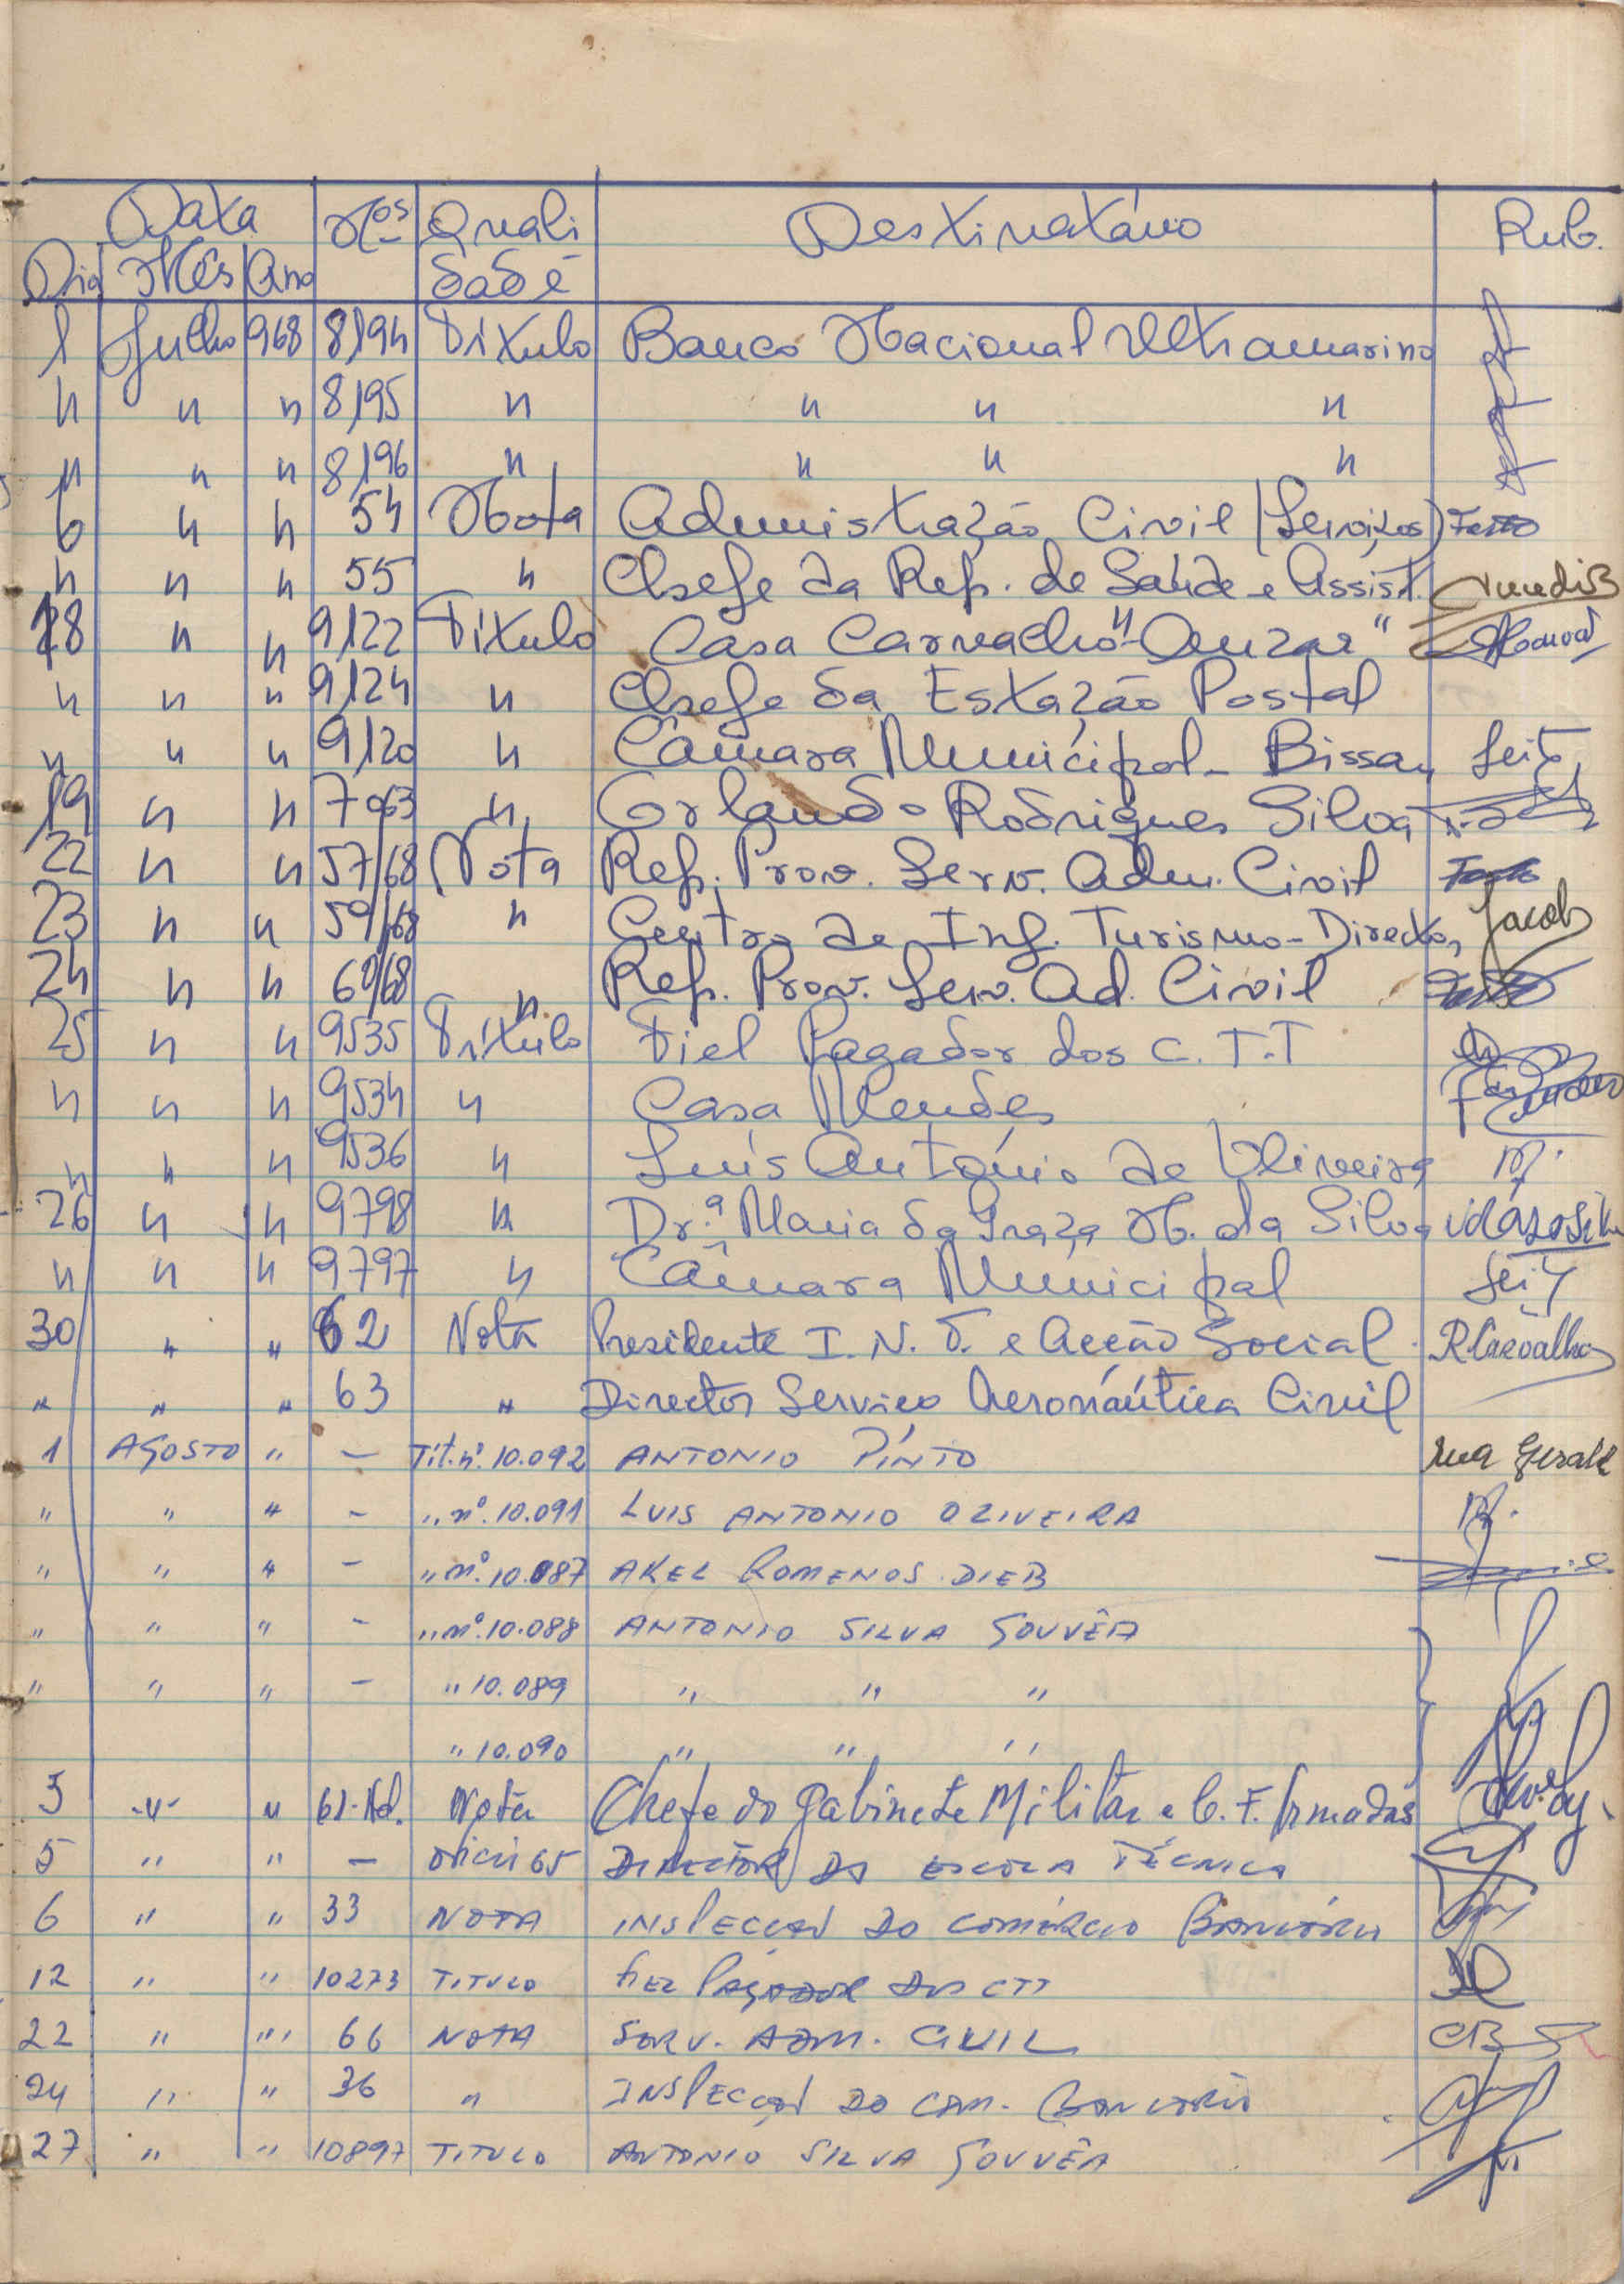 Data Nos Quali Destinatário Rub.
Dia Mês Ano dade
1 Julho 968 8194 Título Banco Nacional Ultramarino
" " " 8195 " " " "
" " " 8196 " " " "
6 " " 54 Nota Administração Civil (Serviços)
" " " 55 " Chefe da Rep. de Saúde e Assist.
18 " " 9122 Título Casa Carvalho "Ouzar"
" " " 9124 " Chefe da Estação Postal
" " " 9120 " Câmara Municipal - Bissau Leite
19 " " 7063 " Orlando Rodrigues Silva
22 " " 57/68 Nota Rep. Prov. Serv. Adm. Civil
23 " " 59/68 " Centro de Inf. Turismo - Director Jacob
24 " " 60/68 " Rep. Prov. Serv. Ad. Civil
25 " " 9535 Título Fiel Pagador dos C.T.T
" " " 9534 " Casa Mendes
" " " 9536 " Luís António de Oliveira
26 " " 9798 " Dr.ª Maria da Graça N. da Silva
" " " 9797 " Câmara Municipal
30 " " 62 Nota Presidente I. N. T. e Acção Social RCarvalho
" " " 63 " Director Serviço Aeronáutica Civil
1 AGOSTO " - Tít. nº. 10.092 ANTONIO PINTO
" " " - " nº. 10.091 LUIS ANTONIO OLIVEIRA
" " " - " nº. 10.087 AKEL ROMENOS DIEB
" " " - " nº. 10.088 ANTONIO SILVA GOUVÊA
" " " - " 10.089 " " "
" 10.090 " " "
3 " " 61- Nota Chefe do Gabinete Militar e C. F. Armadas
5 " " - 65 DIRECTOR DA ESCOLA TÉCNICA
6 " " 33 NOTA INSPECÇÃO DO COMÉRCIO BANCÁRIO
12 " " 10273 TITULO FIEL PAGADOR DOS CTT
22 " " 66 NOTA SERV. ADM. CIVIL
24 " " 36 " INSPECÇÃO DO COM. BANCÁRIO
27 " " 10897 TITULO ANTONIO SILVA GOUVÊA